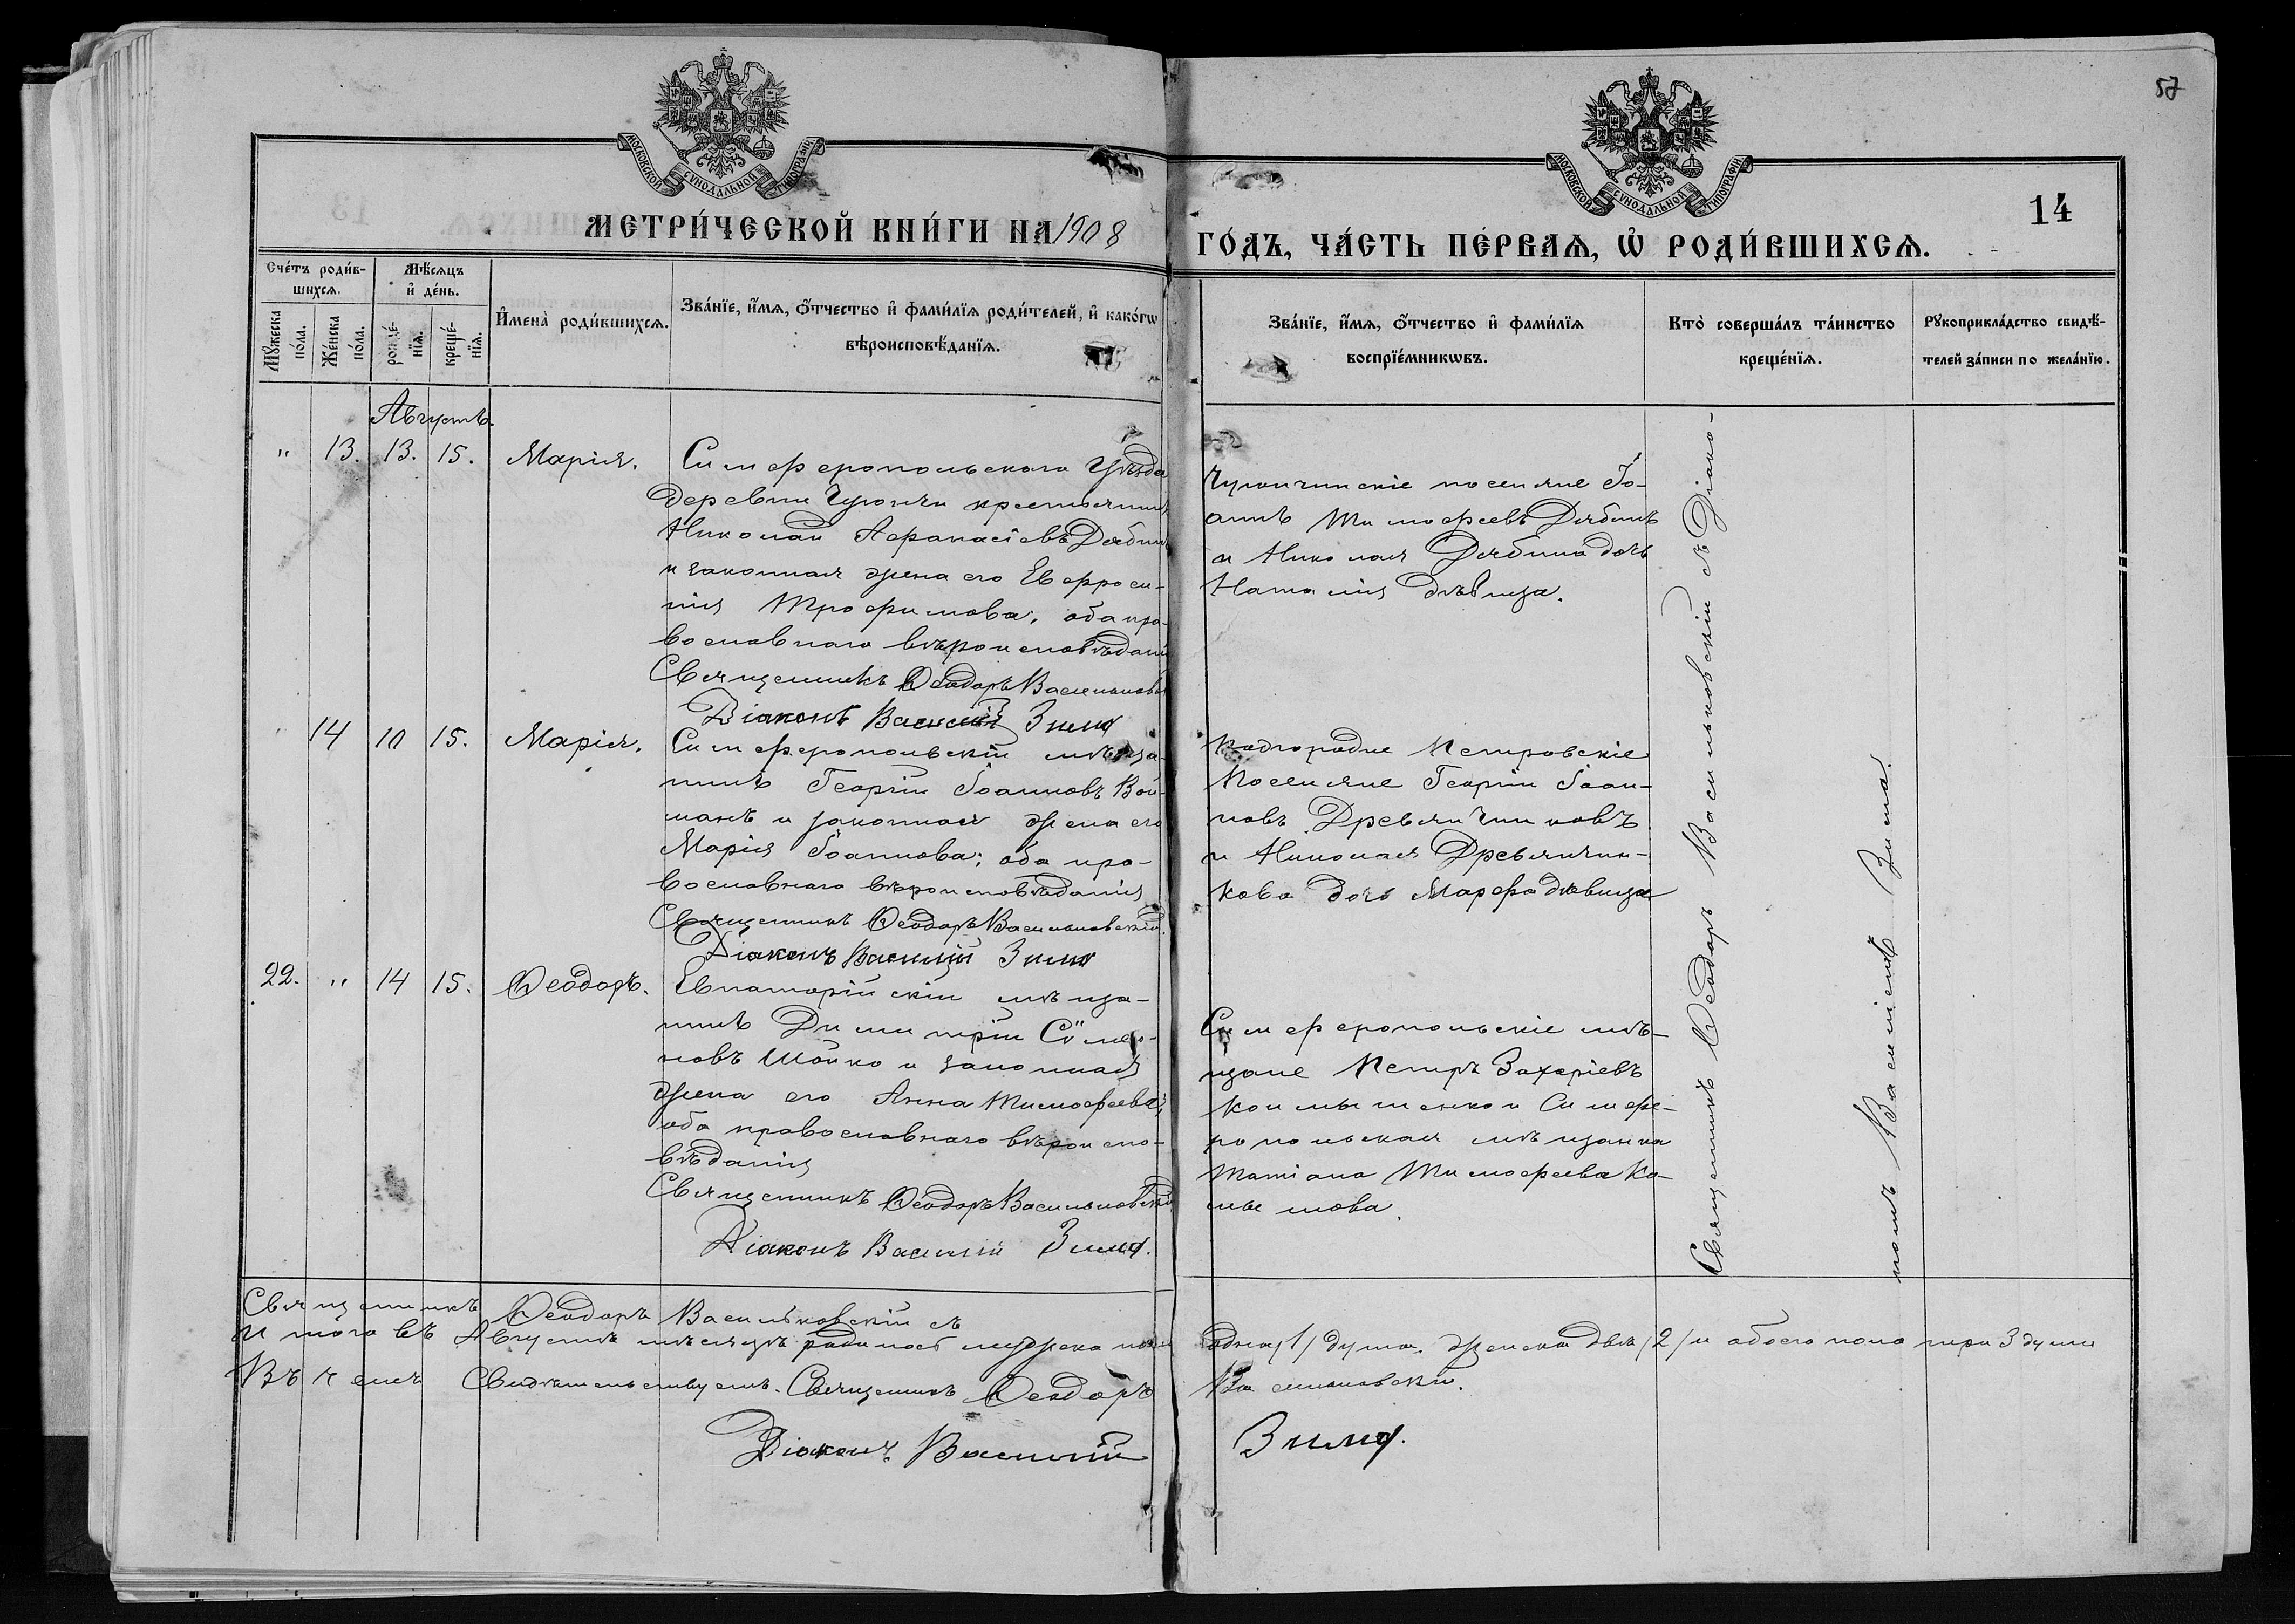 57
МОСКОВСКОЙ СѴНОДАЛЬНОЙ ТИПОГРАФІИ
МОСКОВСКОЙ СѴНОДАЛЬНОЙ ТИПОГРАФІИ
14
МЕТРИ́ЧЕСКОЙ КНИ́ГИ НА 1908
ГО́ДЪ, ЧА́СТЬ ПЕ́РВАѦ, Ѡ РОДИ́ВШИХСѦ.
Сче́тъ роди́в-
шихсѧ.
Мꙋ́жеска
по́ла.
Же́нска
по́ла.
Мѣ́сѧцъ
и҆ де́нь.
рожде́-
нїѧ.
креще́-
нїѧ.
И҆мена̀ роди́вшихсѧ.
Зва́нїе, и҆́мѧ, ѻ҆́тчество и҆ фами́лїѧ роди́телей, и҆ како́гѡ
вѣроисповѣ́данїѧ.
Зва́нїе, и҆́мѧ, ѻ҆́тчество и҆ фами́лїѧ
воспрїе́мникѡвъ.
Кто̀ соверша́лъ та́инство
креще́нїѧ.
Рꙋкоприкла́дство свидѣ́-
телей за́писи по жела́нїю.
Августъ.
" 13. 13. 15. Марія.
Симферопольскаго Уѣзда
деревни крестьянинъ
Николай Афанасіевъ Дябинъ
и законная жена его Евфроси-
нія Трофимова, оба пра-
вославнаго вѣроисповѣданія
Священникъ Ѳеодоръ Васильковскій
Діаконъ Василій Зима
посе­ляне Іо-
аннъ Тимофеевъ Дябинъ
и Николая Дябина дочь
Наталія дѣвица.
14 10 15. Марія.
Симферопольскій мѣща-
нинъ Георгій Іоанновъ Вой-
манъ и законная жена его
Марія Іоаннова; оба пра-
вославнаго вѣроисповѣданія
Священникъ Ѳеодоръ Васильковскій.
Діаконъ Василій Зима
Подгородне Петровскіе
Поселяне Георгій Іоан-
новъ Древянчиковъ
и Николая Древянчи-
кова дочь Марфа дѣвица
22. " 14 15. Ѳеодоръ.
Евпаторійскій мѣща-
нинъ Димитрій Сѵмео-
новъ Шойко и законная
жена его Анна Тимофеева,
оба православнаго вѣроиспо-
вѣданія
Священникъ Ѳеодоръ Васильковскій
Діаконъ Василій Зима.
Симферопольскіе мѣ-
щане Петръ Захаріевъ
и Симфе-
ропольская мѣщанка
Татіана Тимофеева Ка-
мышова.
Священникъ Ѳеодоръ Васильковскій съ Діако-
номъ Василіемъ Зима.
Священникъ Ѳеодоръ Васильковскій съ
Итого въ Августѣ мѣсяцѣ родилось мужска пола одна /1/ душа, женска двѣ /2/ и обоего пола три 3 души
Въ чемъ Свидѣтельствуемъ. Священникъ Ѳеодоръ Васильковскій.
Діаконъ Василій Зима.